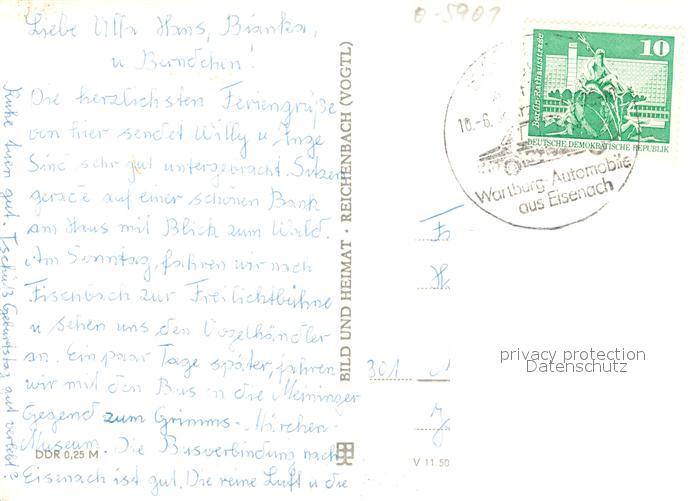 Liebe Ulla Hans, Bianka,
u Berndchen!
Die herzlichsten Feriengrüße
von hier sendet Willy u. Inge
Sind sehr gut untergebracht. Sitzen
gerade auf einer schönen Bank
am Haus mit Blick zum Wald.
Am Sonntag, fahren wir nach
Fischbach zur Freilichtbühne
u sehen uns den Vogelhändler
an. Ein paar Tage später, fahren
wir mit den Bus in die Meininger
Gegend zum Grimms-Märchen-
Museum. Die Busverbindung nach
Eisenach ist gut. Die reine Luft u die
Ruhe tuen gut. Tschüß Geburtstag gut verlebt?
DDR 0,25 M
BILD UND HEIMAT · REICHENBACH (VOGTL)
V 11 50
0-5901
10
Berlin-Rathausstraße
DEUTSCHE DEMOKRATISCHE REPUBLIK
Wartburg-Automobile
aus Eisenach
301
privacy protection
Datenschutz